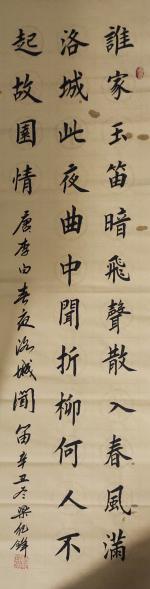 誰家玉笛暗飛聲散入春風滿
洛城此夜曲中聞折柳何人不
起故園情 唐李白春夜洛城聞笛 辛丑冬 梁